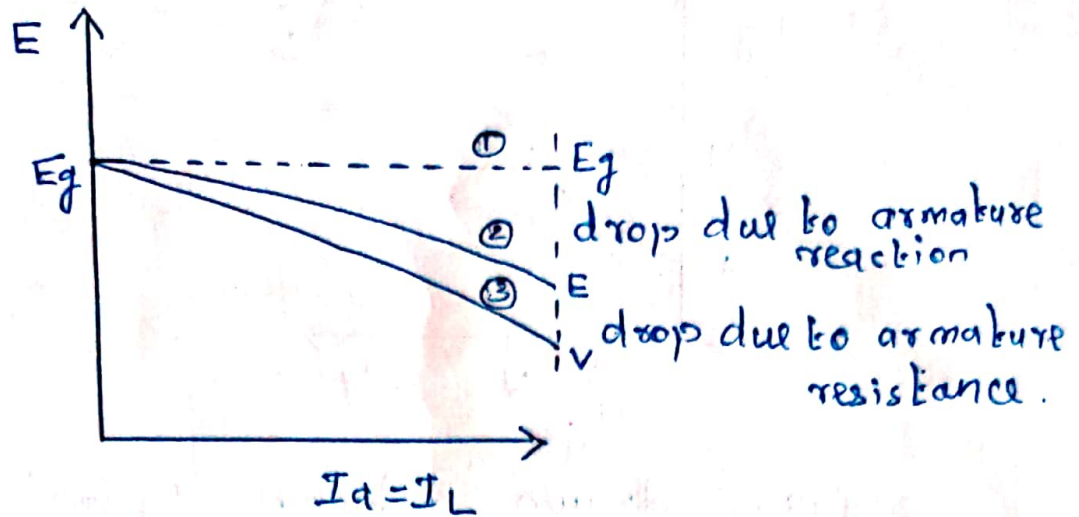 E
① Eg
Eg
drop due to armature
reaction
②
E
③
drop due to armature
V
resistance.
Ia = IL